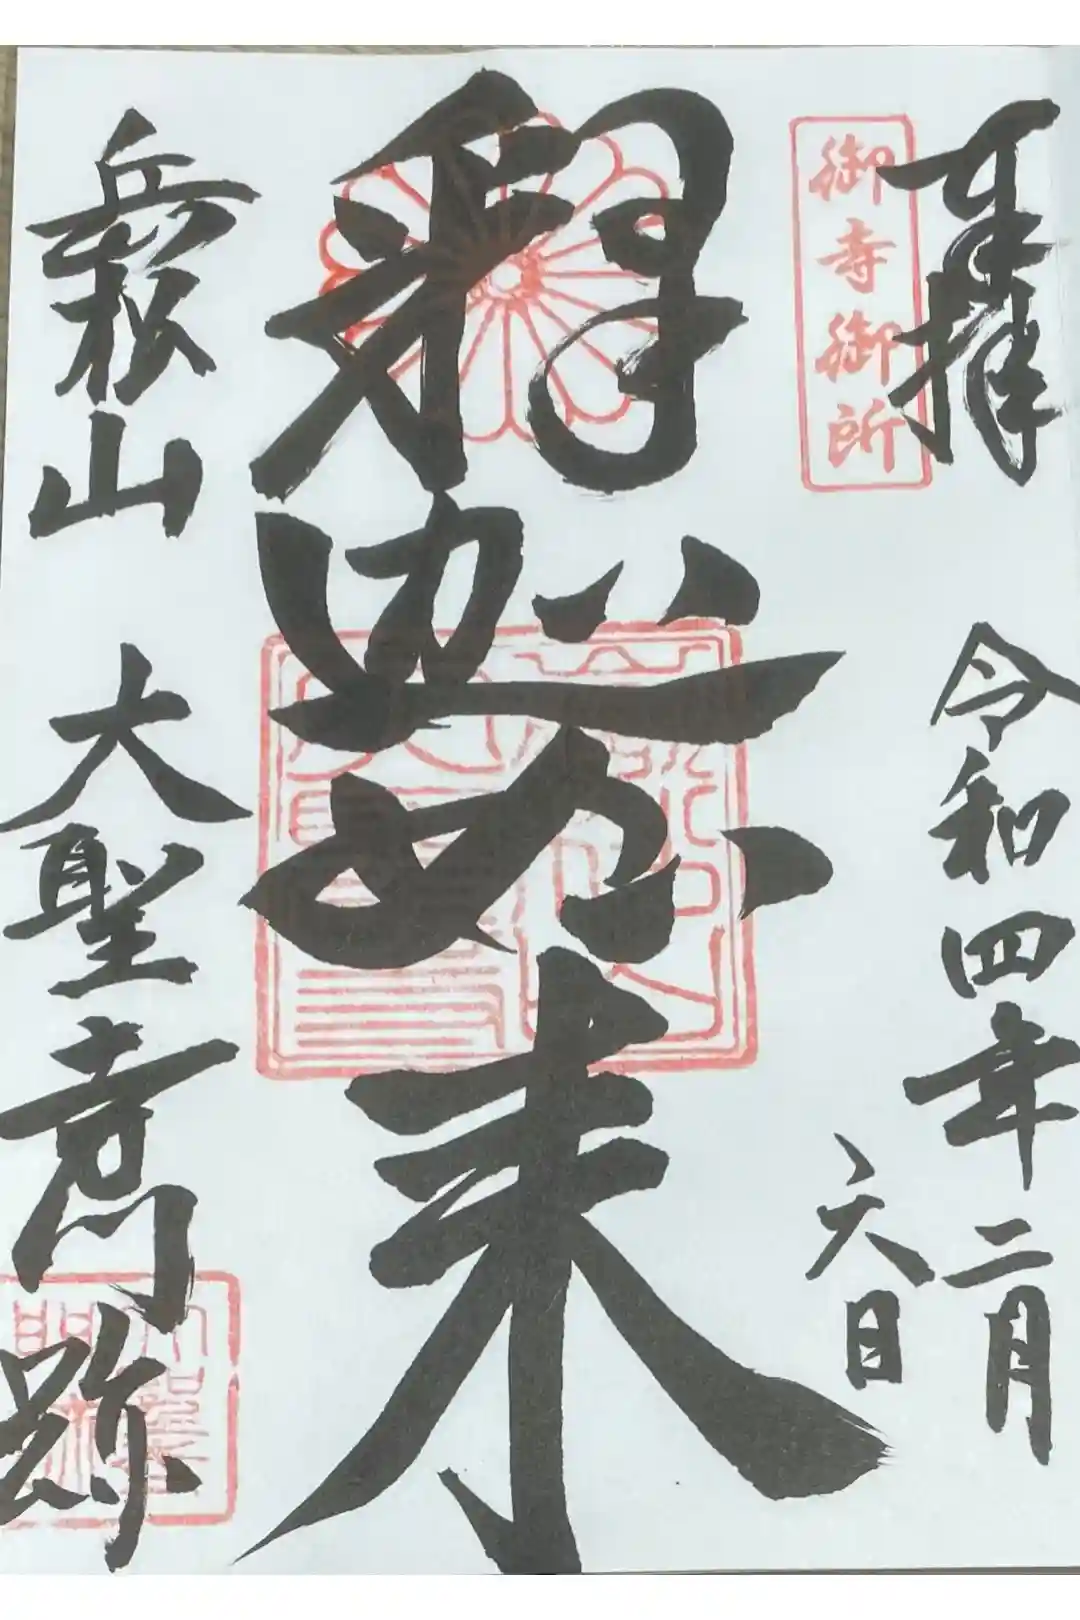 奉拝
御寺御所
令和四年二月
六日
釈迦如来
岳松山
大聖寺門跡